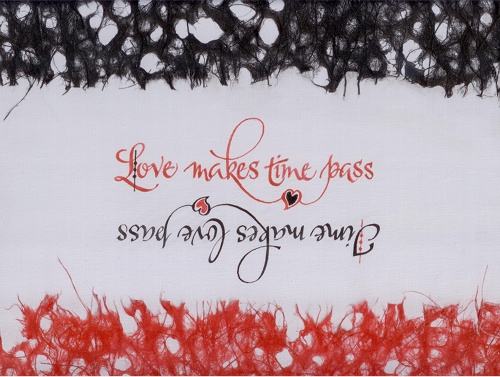 Love makes time pass
Time makes love pass